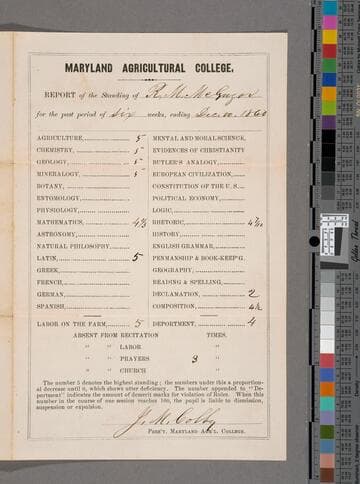 MARYLAND AGRICULTURAL COLLEGE.
REPORT of the Standing of R. M. McGregor
for the past period of Six weeks, ending Dec 10. 1860
AGRICULTURE, 5
CHEMISTRY, 5
GEOLOGY, 5
MINERALOGY, 5
BOTANY,
ENTOMOLOGY,
PHYSIOLOGY,
MATHEMATICS,
ASTRONOMY,
NATURAL PHILOSOPHY,
LATIN, 5
GREEK,
FRENCH,
GERMAN,
SPANISH,
LABOR ON THE FARM, 5
MENTAL AND MORAL SCIENCE,
EVIDENCES OF CHRISTIANITY
BUTLER'S ANALOGY,
EUROPEAN CIVILIZATION,
CONSTITUTION OF THE U. S.
POLITICAL ECONOMY,
LOGIC,
RHETORIC,
HISTORY,
ENGLISH GRAMMAR,
PENMANSHIP & BOOK-KEEP'G.
GEOGRAPHY,
READING & SPELLING,
DECLAMATION, 2
COMPOSITION,
DEPORTMENT, 4
ABSENT FROM RECITATION TIMES.
" " LABOR "
" " PRAYERS 3 "
" " CHURCH "
The number 5 denotes the highest standing; the numbers under this a proportion-
al decrease until 0, which shows utter deficiency. The number appended to "De-
portment" indicates the amount of demerit marks for violation of Rules. When this
number in the course of one session reaches 100, the pupil is liable to dismission,
suspension or expulsion.
J. M. Colby
PRES'T. MARYLAND AGR'L. COLLEGE.
Golden Thread